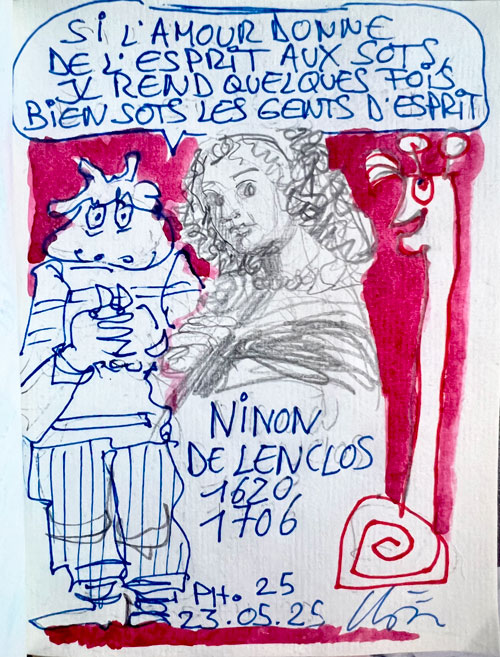 SI L'AMOUR DONNE
DE L'ESPRIT AUX SOTS,
IL REND QUELQUES FOIS,
BIEN SOTS LES GENTS D'ESPRIT
NINON
DE LENCLOS
1620
1706
PH. 25
23.05.25